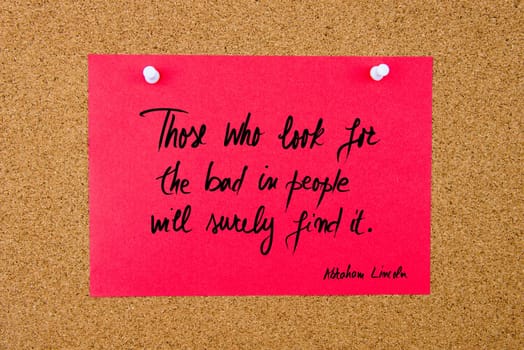 Those who look for
the bad in people
will surely find it.
Abraham Lincoln